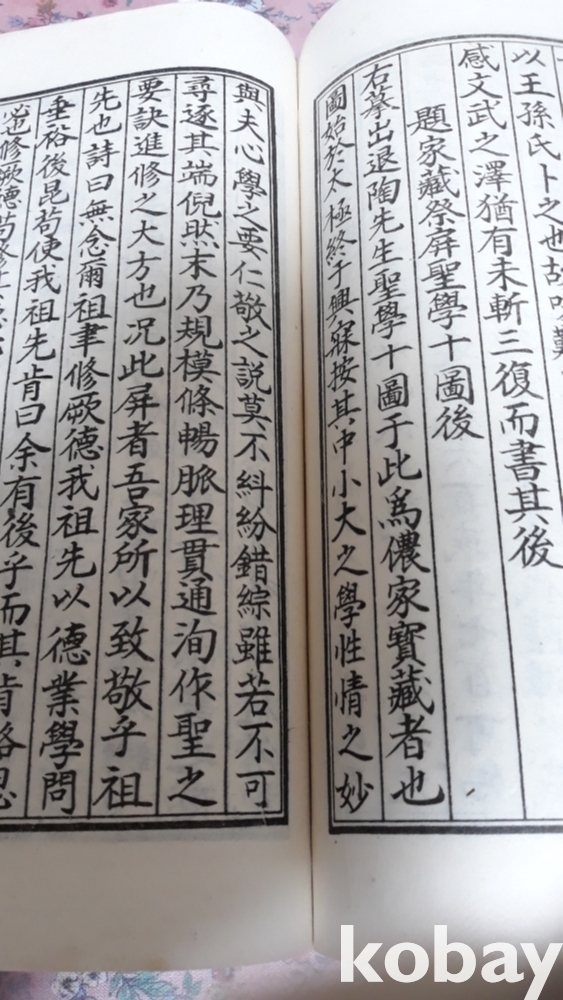 以王孫氏卜之也故
感文武之澤猶有未斬三復而書其後
題家藏祭屏聖學十圖後
右摹出退陶先生聖學十圖于此爲儂家寶藏者也
圖始於太極終于興寐按其中小大之學性情之妙
與夫心學之要仁敬之說莫不糾紛錯綜雖若不可
尋逐其端倪然末乃規模條暢脈理貫通洵作聖之
要訣進修之大方也况此屏者吾家所以致敬乎祖
先也詩曰無念爾祖聿修厥德我祖先以德業學問
垂裕後昆苟使我祖先肯曰余有後乎而其肯
修厥德苟修
kobay